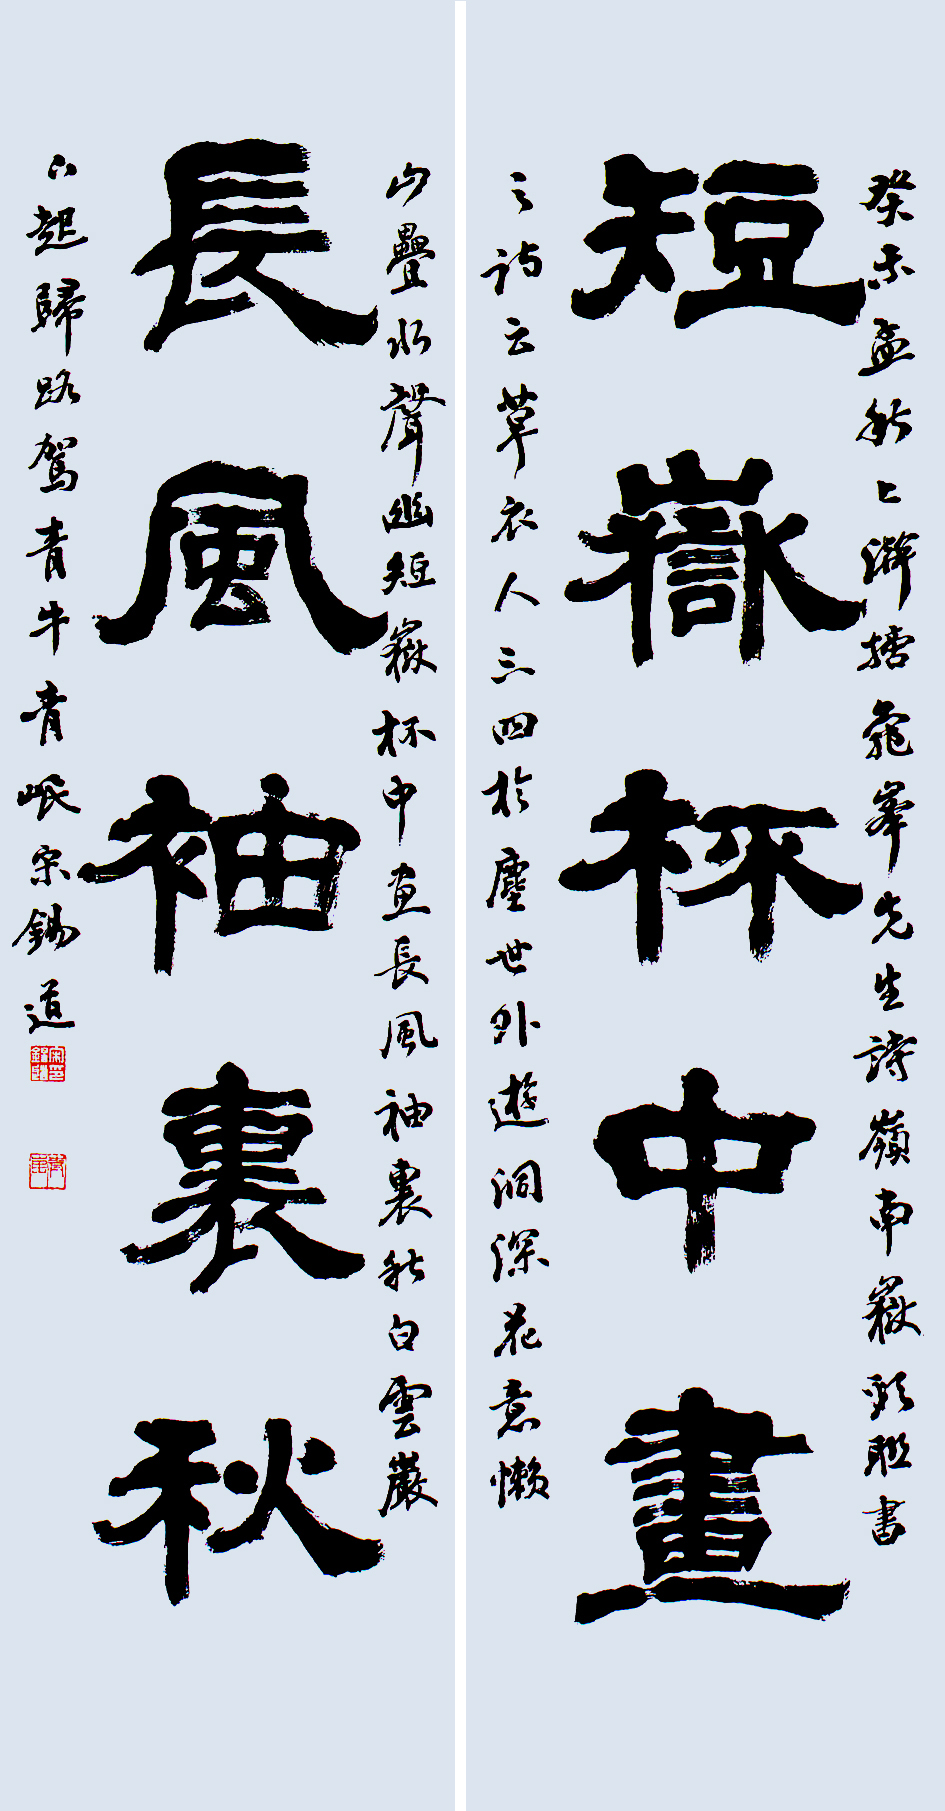 癸未孟秋上澣摘龜峯先生詩嶺南嶽頸聯書
短嶽杯中畫
之詩云草衣人三四於塵世外遊洞深花意懶
山疊水聲幽短嶽杯中画長風袖裏秋白雲巖
長風袖裏秋
下起歸路駕青牛青岷宋錫道